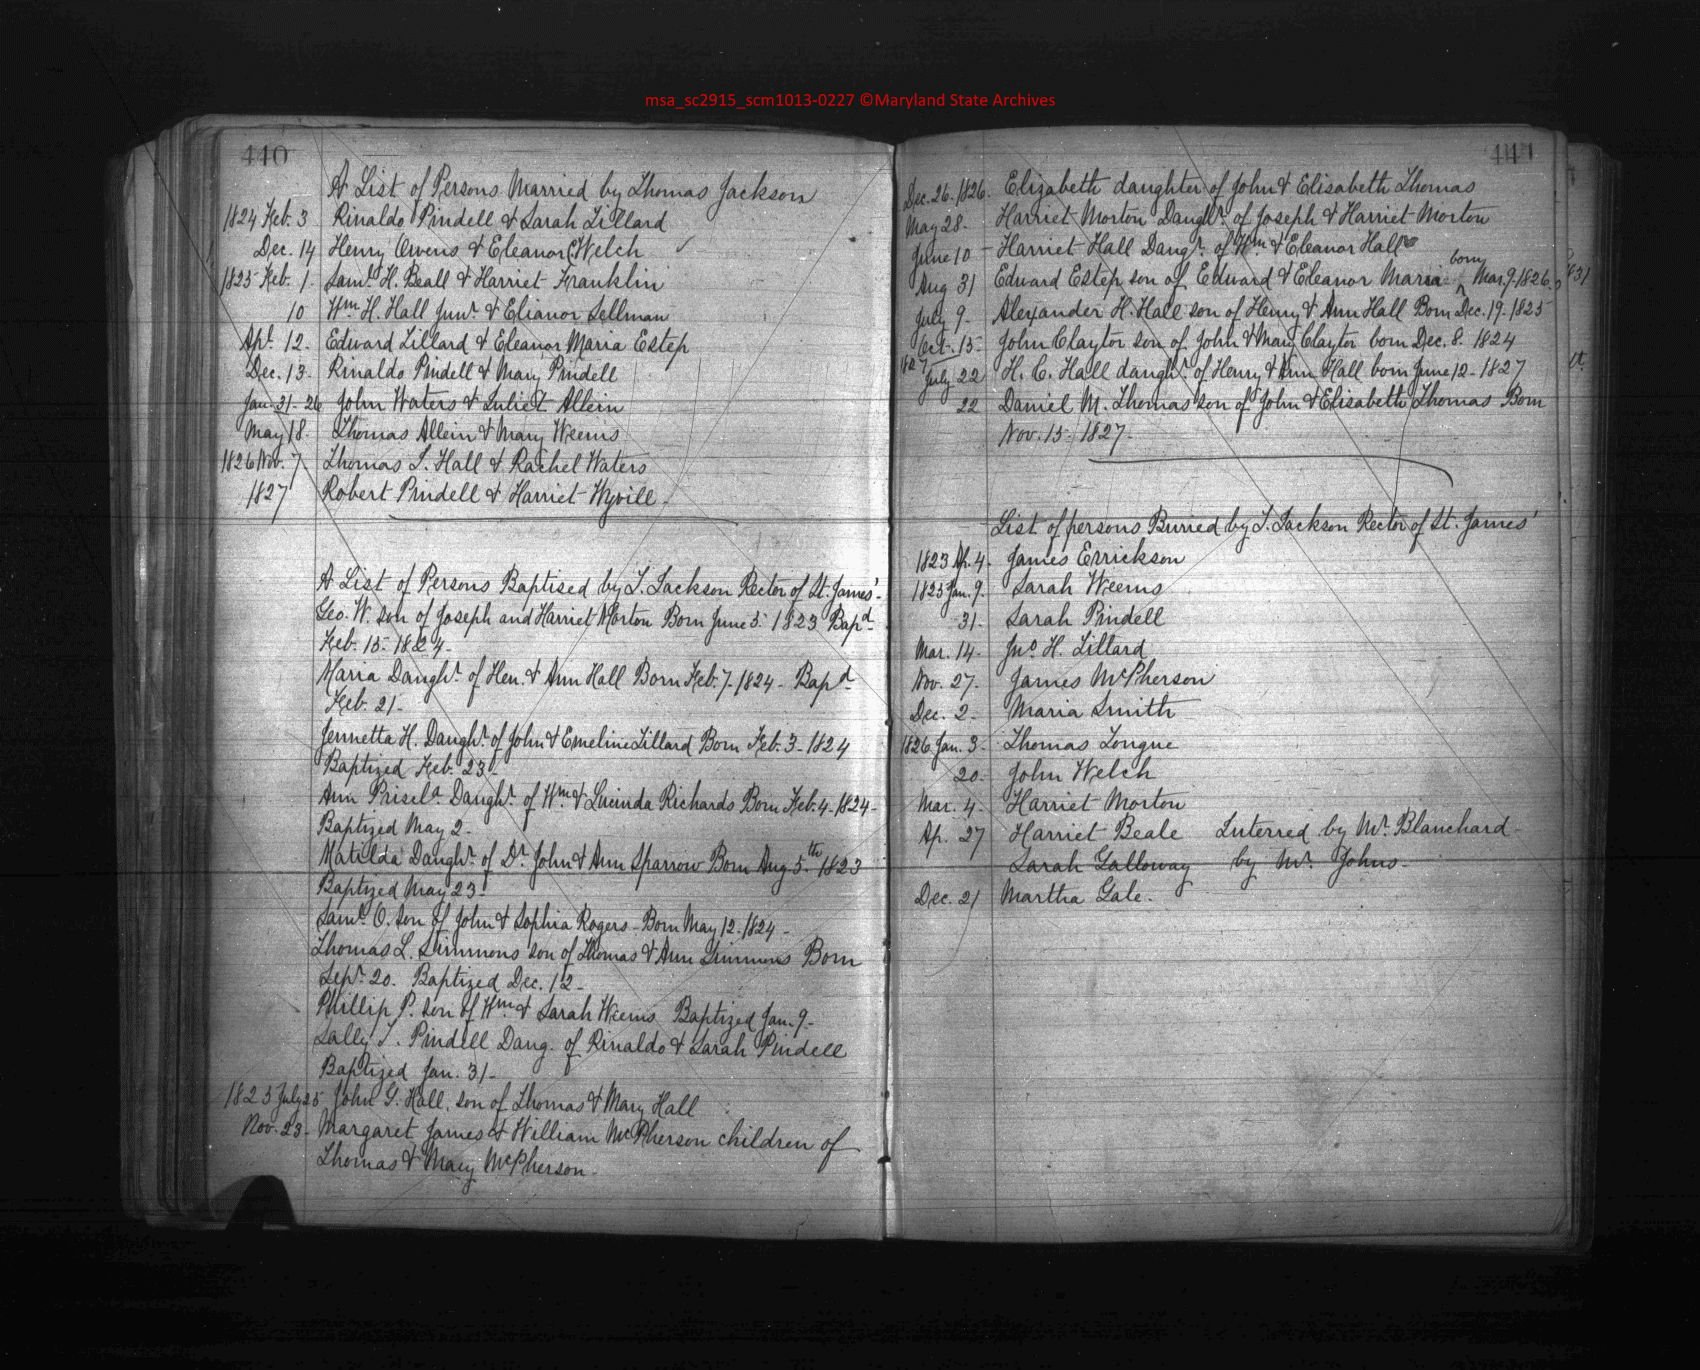 msa_sc2915_scm1013-0227 ©Maryland State Archives
440
A List of Persons Married by Thomas Jackson
1824 Feb. 3 Rinaldo Pindell & Sarah Lillard
Dec. 14 Henry Owens & Eleanor C. Welch
1825 Feb. 1. Saml. H. Beall & Harriet Franklin
10 Wm. H. Hall Junr. & Elianor Sellman
Apl. 12. Edward Lillard & Eleanor Maria Estep
Dec. 13. Rinaldo Pindell & Mary Pindell
Jan. 31-26 John Waters & Juliet Allein
May 18. Thomas Allein & Mary Weems
1826 Nov. 7. Thomas S. Hall & Rachel Waters
1827 Robert Pindell & Harriet Wyvill.
A List of Persons Baptised by T. Jackson Rector of St. James'-
Geo. W. son of Joseph and Harriet Morton Born June 5- 1823 Bapd.
Feb. 15- 1824-
Maria Daughr. of Hen. & Ann Hall Born Feb. 7-1824- Bapd-
Feb. 21-
Jennetta H. Daughr. of John & Emeline Lillard Born Feb. 3-1824
Baptized Feb. 23-
Ann Prisela. Daughr. of Wm. & Lucinda Richards Born Feb. 4-1824-
Baptized May 2-
Matilda Daughr. of Dr. John & Ann Sparrow Born Aug 5th 1823
Baptized May 23
Saml. O. son of John & Sophia Rogers - Born May 12-1824-
Thomas L. Simmons son of Thomas & Ann Simmons Born
Sepr. 20. Baptized Dec. 12-
Phillip P. son of Wm. & Sarah Weems Baptized Jan. 9-
Sally S. Pindell Daug. of Rinaldo & Sarah Pindell
Baptized Jan. 31-
1825 July 25 John G. Hall, son of Thomas & Mary Hall
Nov. 23- Margaret James & William McPherson children of
Thomas & Mary McPherson.
441
Dec. 26. 1826. Elizabeth daughter of John & Elisabeth Thomas
May 28- Harriet Morton Daughr. of Joseph & Harriet Morton
June 10- Harriet Hall Daugr. of Wm. & Eleanor Hall
born
Aug 31 Edward Estep son of Edward & Eleanor Maria ^ Mar. 9-1826
July 9- Alexander H. Hall son of Henry & Ann Hall Born Dec. 19-1825
Oct. 15- John Claytor son of John & Mary Claytor born Dec. 8. 1824
1827 July 22 H. C. Hall daughr. of Henry & Ann Hall born June 12-1827
22 Daniel M. Thomas son of John & Elisabeth Thomas Born
Nov. 15- 1827-
List of persons Buried by T. Jackson Rector of St. James'
1823 Ap. 4- James Errickson
1825 Jan. 9. Sarah Weems
31. Sarah Pindell
Mar. 14- Jno. H. Lillard
Nov. 27. James McPherson
Dec. 2- Maria Smith
1826 Jan. 3- Thomas Tongue
20. John Welch
Mar. 4- Harriet Morton
Ap. 27 Harriet Beale Interred by Mr. Blanchard-
Sarah Galloway by Mr. Johns-
Dec. 21 Martha Gale.